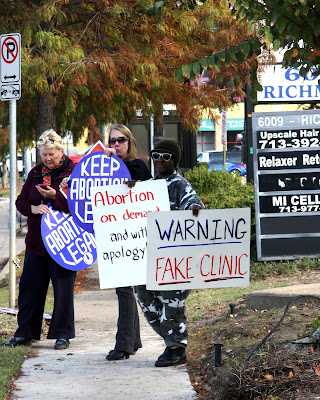 P
KEEP
ABORTION
LEGAL
KEEP
ABORT
LEGAL
Abortion
on demand
and with
apology
WARNING
FAKE CLINIC
60
RICHM
6009 - RICH
Upscale Hair
713-392
Relaxer Ret
MI CELL
713-977